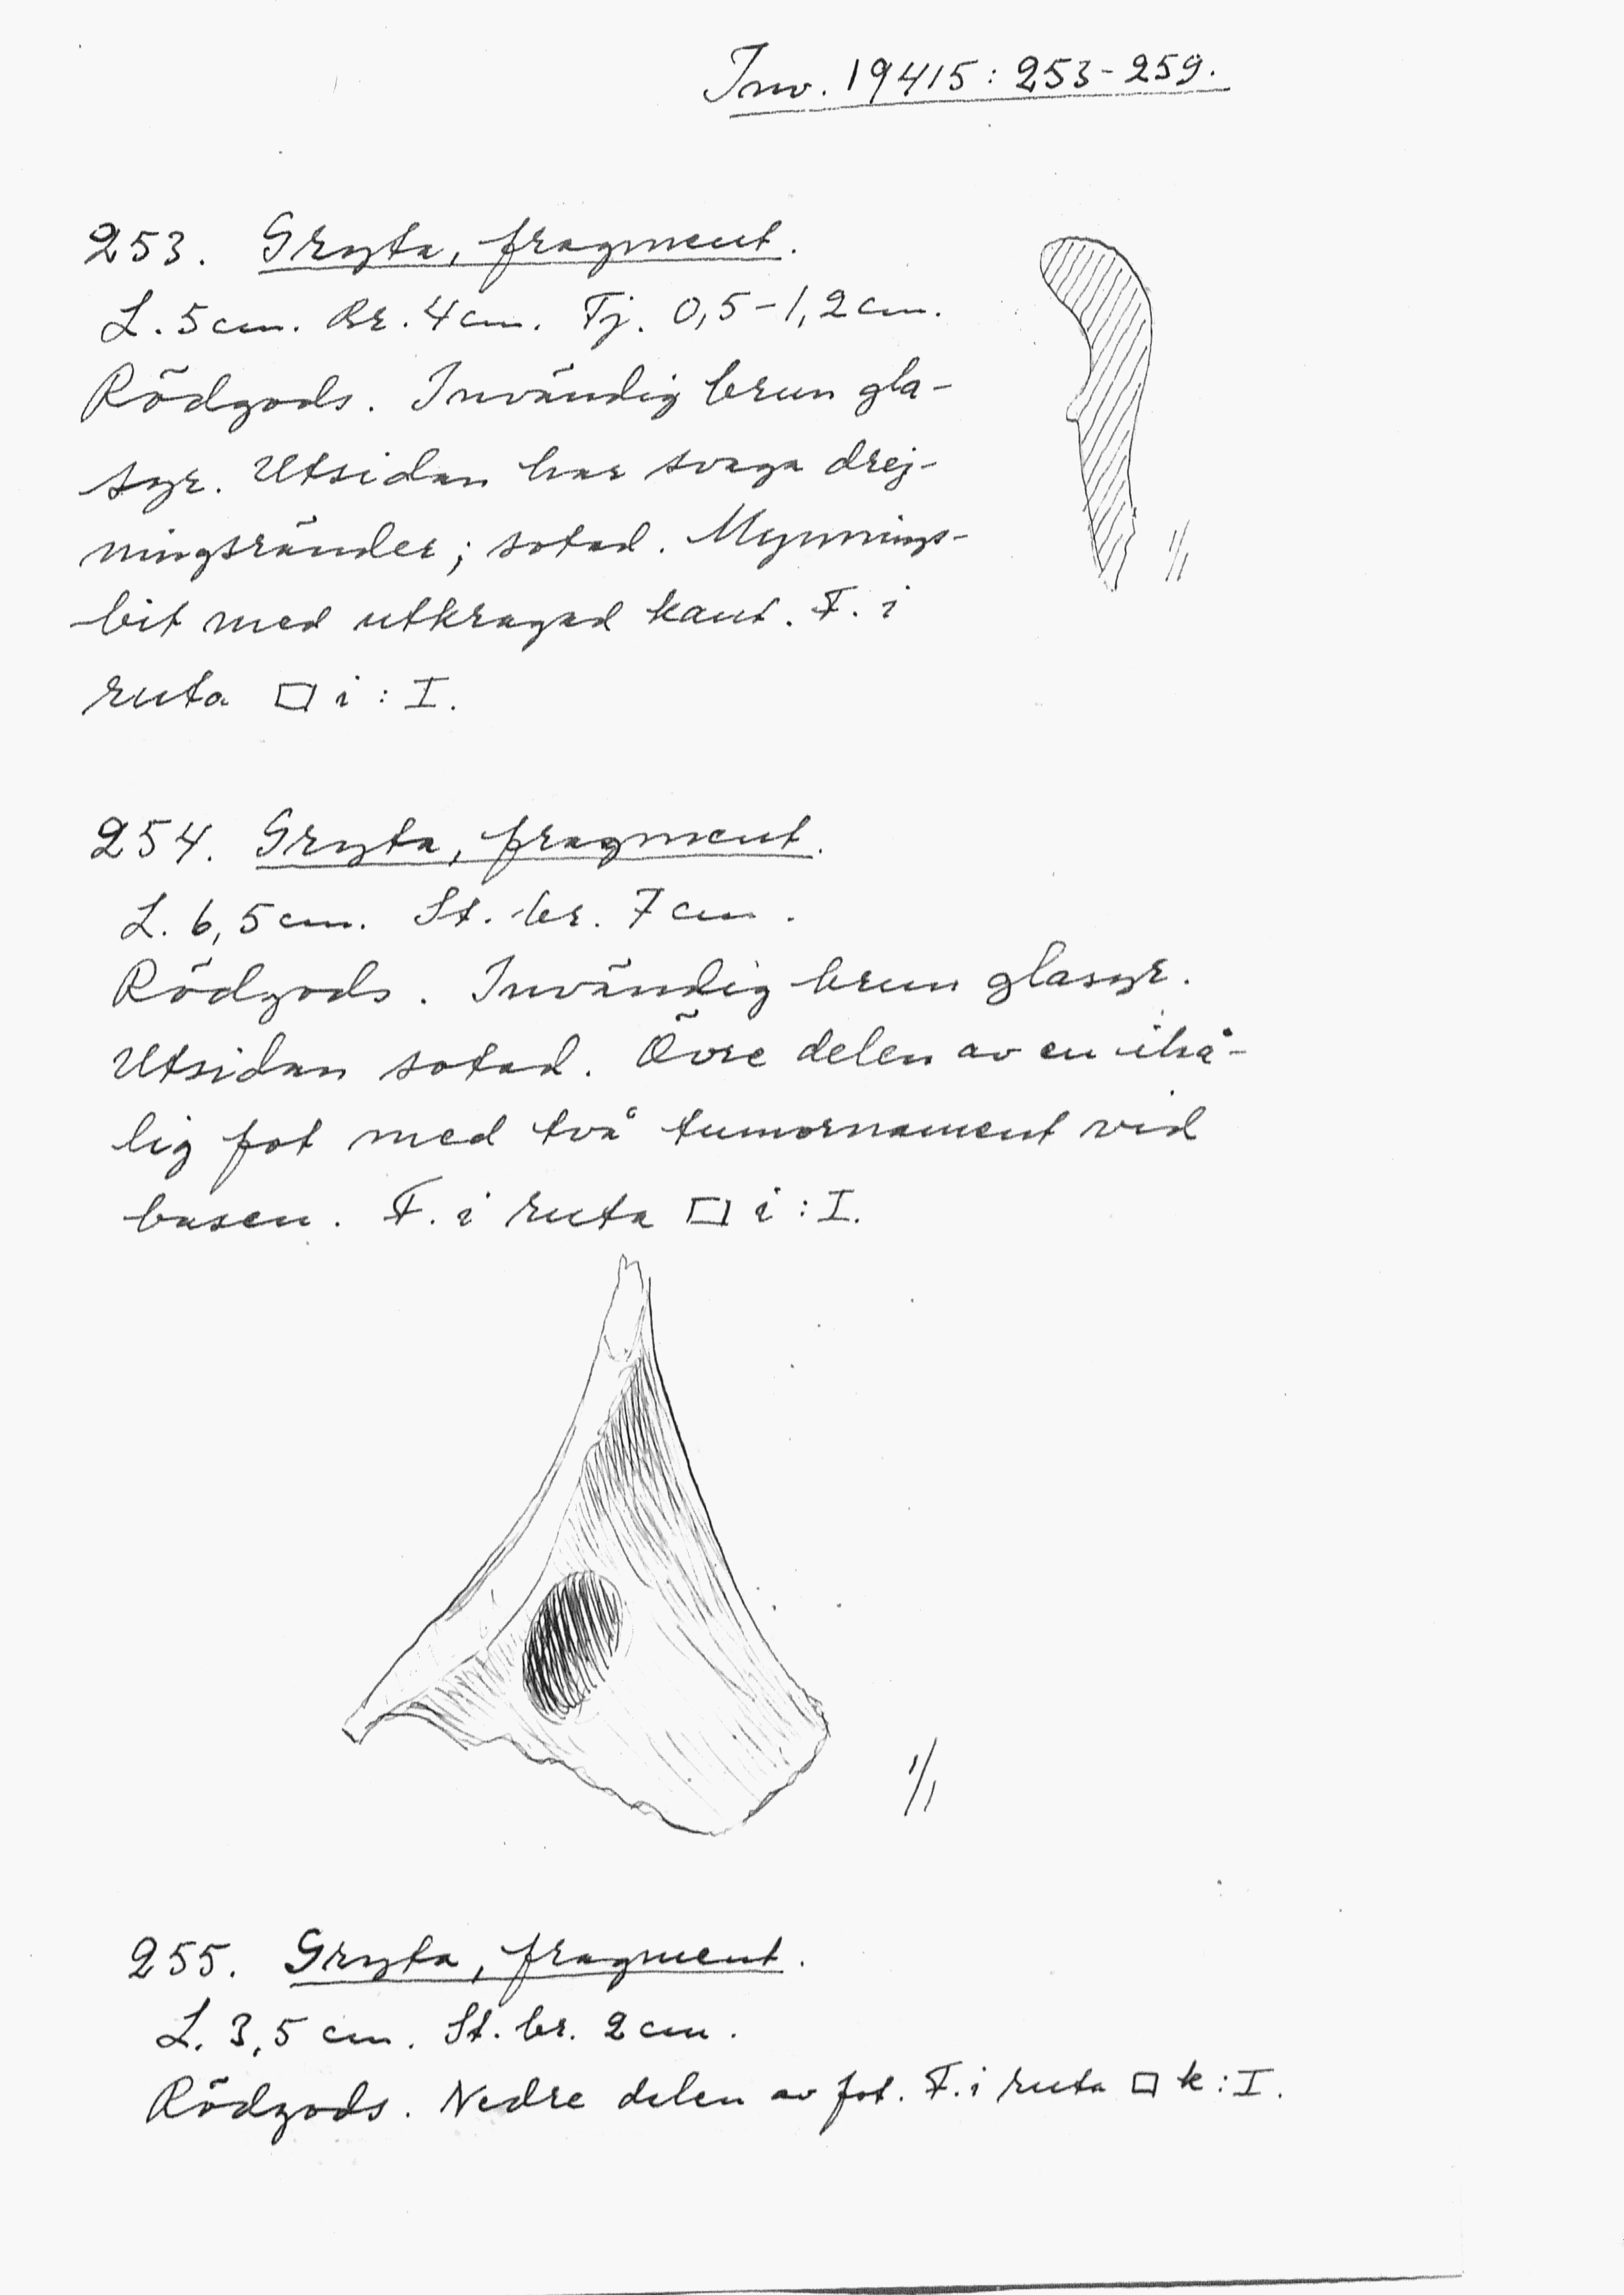 Inv. 19415:253-259.
253. Gryta, fragment.
L. 5cm. Br. 4cm. Tj. 0,5-1,2cm.
Rödgods. Invändig brun gla-
syr. Utsidan har svaga drej-
ningsränder; sotad. Mynnings-
bit med utkragad kant. F. i
ruta □ i:I.
1/1
254. Gryta, fragment.
L. 6,5cm. St. br. 7cm.
Rödgods. Invändig brun glasyr.
Utsidan sotad. Övre delen av en ihå-
lig fot med två tumornament vid
basen. F. i ruta □ i:I.
1/1
255. Gryta, fragment.
L. 3,5 cm. St. br. 2cm.
Rödgods. Nedre delen av fot. F. i ruta □ k:I.